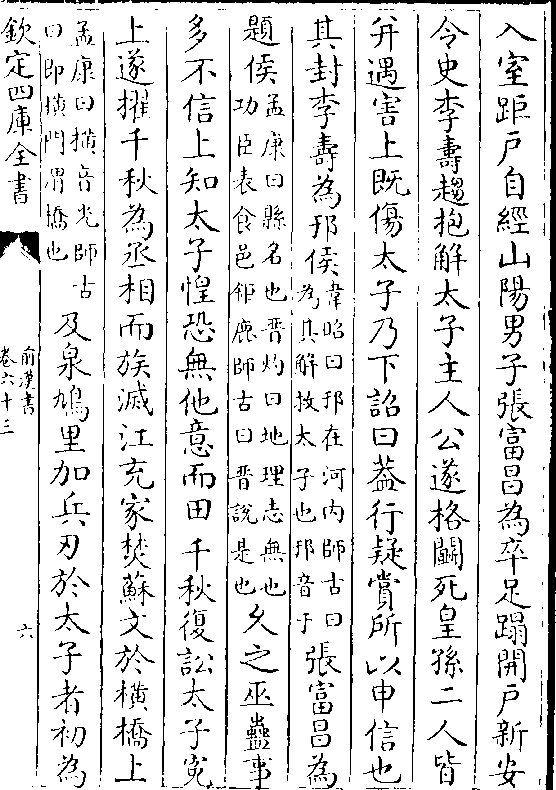 入室距戶自經山陽男子張富昌為卒足蹋開戶新安
令史李壽趨抱解太子主人公遂格鬬死皇孫二人皆
并遇害上既傷太子乃下詔曰葢行疑賞所以申信也
其封李壽為邘侯韋昭曰邘在河内師古曰為其解救太子也邘音于張富昌為
題侯孟康曰縣名也晉灼曰地理志無也功臣表食邑鉅鹿師古曰晉說是也乆之巫蠱事
多不信上知太子惶恐無他意而田千秋復訟太子寃
上遂擢千秋為丞相而族滅江充家焚蘇文於橫橋上
孟康曰橫音光師古曰即橫門渭橋也及泉鳩里加兵刃於太子者初為
欽定四庫全書
前漢書
卷六十三
六